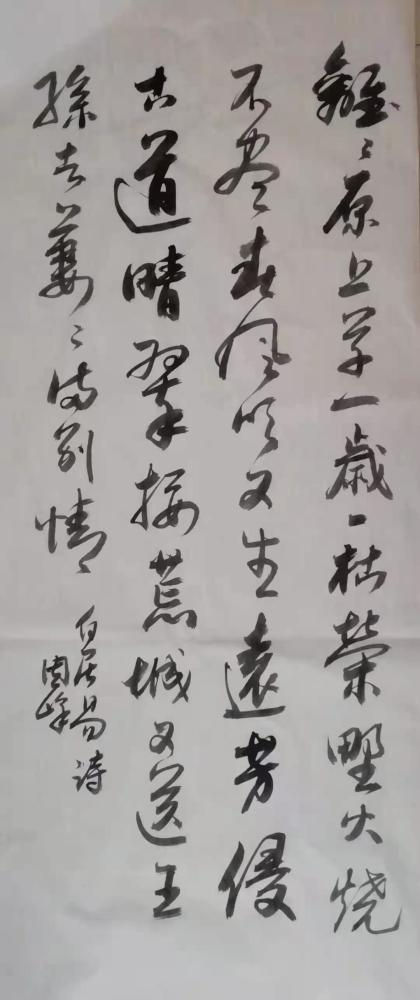 離〻原上草一歲一枯榮野火燒
不盡春風吹又生遠芳侵
古道晴翠接荒城又送王
孫去萋〻滿別情
白居易詩
周峰